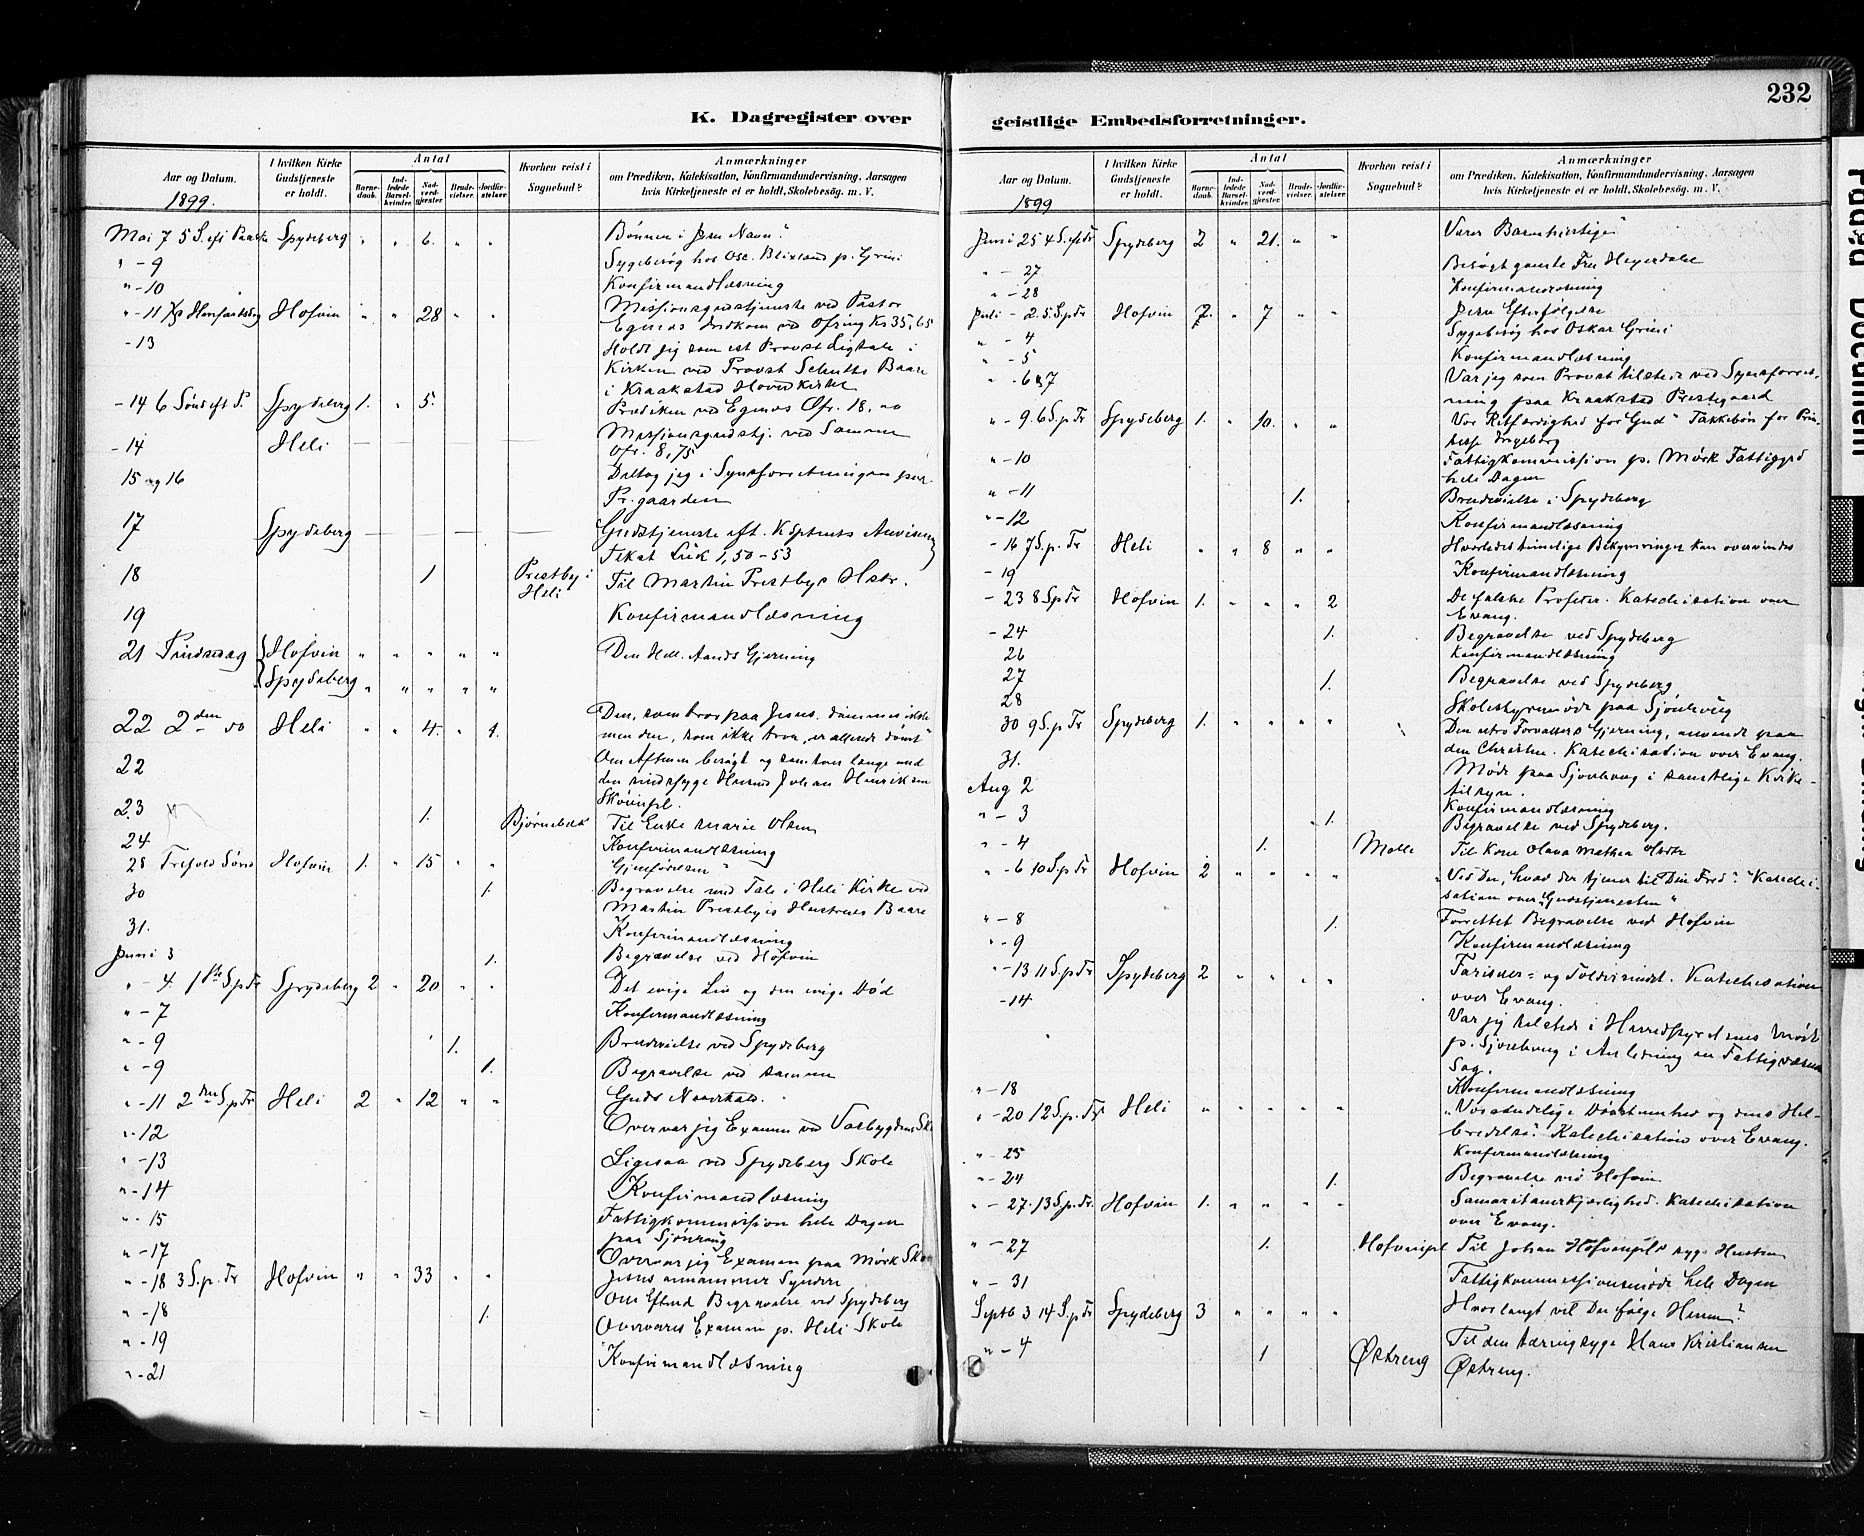 232
K. Dagregister over
geistlige Embedsforretninger.
Aar og Datum. I hvilken Kirke Gudstjeneste er holdt. Antal Barnedaab. Indledede Barselkvinder. Nadverdgjester. Brudevielser. Jordfæstelser. Hvorhen reist i Sognebud? Anmærkninger om Prædiken, Katekisation, Konfirmandundervisning, Aarsagen hvis Kirketjeneste ei er holdt, Skolebesög. m. V.
1899.
Mai 7 5 S. eft Paaske Spydeberg " " 6. " " Bønnen i Jesu Navn."
" - 9 Sygebesøg hos Osc. Blixland p. Grini
" - 10 Konfirmandlæsning
" - 11 Hofvin " " 28 " " Missionsgudstjeneste ved Pastor
Indkom ved Ofring Kr 35,65
- 13 Holdt jeg som cst Provst Ligtale i
Kirken ved Provst Schults Baare
i Kraakstad Hovedkirke
- 14 6 Sönd eft P. Spydeberg 1. " 5. Prædiken ved Ofr. 18,00
- 14 Heli Missionsgudstj. ved Samme
Ofr. 8,75
15 og 16 Deltog jeg i Synsforretningen paa
Pr. gaarden
17 Spydeberg Gudstjeneste eft.
Tekst Luk 1,50-53
18 1 Prestby i Heli Til Martin Prestbys Hstr.
19 Konfirmandlæsning
21 Pindsedag Hofvin " " " " " Den Hell. Aands Gjerning
Spydeberg " " " " "
22 2den do Heli " " 4. " 1. Den, som tror paa Jesus, dømmes ikke
men den, som ikke tror, er allerede dömt"
22 Om Aftenen besøgt og samtalt længe med
den sindssyge Husmd Johan Henriksen
23 1. Bjørnebæk Til Enke Marie Olsen
24 Konfirmandlæsning
28 Trefold Sönd Hofvin 1. " 15 " " Gjenfödelsen"
30 1. Begravelse med Tale i Heli Kirke ved
Martin Prestbyes Hustrues Baare
31. Konfirmandlæsning
Juni 3 1. Begravelse ved Hofvin
" - 4. 1ste S.p Tr Spydeberg 2 " 20 " " Det evige Liv og den evige Död
" - 7 Konfirmandlæsning
" - 9 1. Brudevielse ved Spydeberg
" - 9 1. Begravelse ved samme
" - 11 2den S.p Tr Heli 2 " 12 " " Guds Naadekald.
" - 12 Overvar jeg Examen ved
" - 13 Ligesaa ved Spydeberg Skole
" - 14 Konfirmandlæsning
" - 15 Fattigkommission hele Dagen
paa Sjönhaug
" - 17 Overvar jeg Examen paa Mörk
" - 18 3 S. p. Tr Hofvin " " 33 " " Jesus annammer Syndere
" - 18 1. Om Efterm Begravelse ved Spydeberg
" - 19 Overværes Examen p. Heli Skole
" - 21 Konfirmandlæsning
Aar og Datum. I hvilken Kirke Gudstjeneste er holdt. Antal Barnedaab. Indledede Barselkvinder. Nadvergjester. Brudevielser. Jordfæstelser. Hvorhen reist i Sognebud? Anmærkninger om Prædiken, Katekisation, Konfirmandundervisning, Aarsagen hvis Kirketjeneste ei er holdt, Skolebesög. m. V.
1899
Juni 25 4 S. eft Tr Spydeberg 2 " 21. " " Værer Barmhjertige"
" - 27 Besögt gamle Fru Heyerdahl
" - 28 Konfirmandlæsning
Juli - 2. 5 S. p Tr Hofvin 2. " 7 " " Jesu Efterfölgelse
" - 4 Sygebesøg hos Oskar Grini
" - 5 Konfirmandlæsning
" - 6 & 7 Var jeg som Provst tilstede ved Synsforret-
ning paa Kraakstad Prestegaard
" - 9. 6 S. p Tr Spydeberg 1. " 10. " " Vor Retfærdighed for Gud" Takkebön for Prin-
sesse Ingeborg
" - 10 Fattigkommission p. Mörk Fattiggrd
hele Dagen
" - 11 1. Brudevielse i Spydeberg
" - 12 Konfirmandlæsning
- 16 7 S. p. Tr Heli " " 8 " " Hvorledes timelige Bekymringer kan overvindes
- 19 Konfirmandlæsning
- 23 8 S p Tr Hofvin 1. " " " 2 De falske Profeter. Katechisation over
Evang.
- 24 1. Begravelse ved Spydeberg
26 Konfirmandlæsning
27 1. Begravelse ved Spydeberg
28 Skolestyremöde paa Sjönhaug
30 9 S. p. Tr Spydeberg 1. " " " " Den utro Forvalters Gjerning, anvendt paa
den Christne. Katechisation over Evang.
31. Möde paa Sjönhaug i samtlige Kirke-
tilsyn.
Aug 2 Konfirmandlæsning
" - 3 1. Begravelse ved Spydeberg.
" - 4 1. Molle Til Kone Olava Mathea
" - 6 10 S. p Tr Hofvin 2 " " " " "Ved Du, hvad der tjener til Din Fred". Katechi-
sation over "Gudstjenesten"
" - 8 1. Forrettet Begravelse ved Hofvin
" - 9 Konfirmandlæsning
" - 13 11 S. p Tr Spydeberg 2 " " " " Farisæer- og Toldersindet. Katechisation
over Evang.
- 14 Var jeg tilstede i Herredstyrets Möde
p. Sjönhaug i Anledning en Fattigvæsens
Sag.
" - 18 Konfirmandlæsning
" - 20 12 S. p. Tr Heli " " " " " "Vor aandelige Dövstumhed og dens Hel-
bredelse". Katechisation over Evang.
" - 25 Konfirmandlæsning
" - 24 1. Begravelse ved Hofvin
" - 27. 13 S. p. Tr. Hofvin 1. " " " " Samaritanerkjærlighed. Katechisation
over Evang.
" - 27 1. Hofvinpl Til Johan Hofvinpls syge Hustru
" - 31 Fattigkommissionsmöde hele Dagen
Septb 3 14 S. p Tr Spydeberg 3 " " " " Hvor langt vil Du følge Herren?
" - 4 1 Østreng Til den tæringssyge Hans Kristiansen
Østreng.